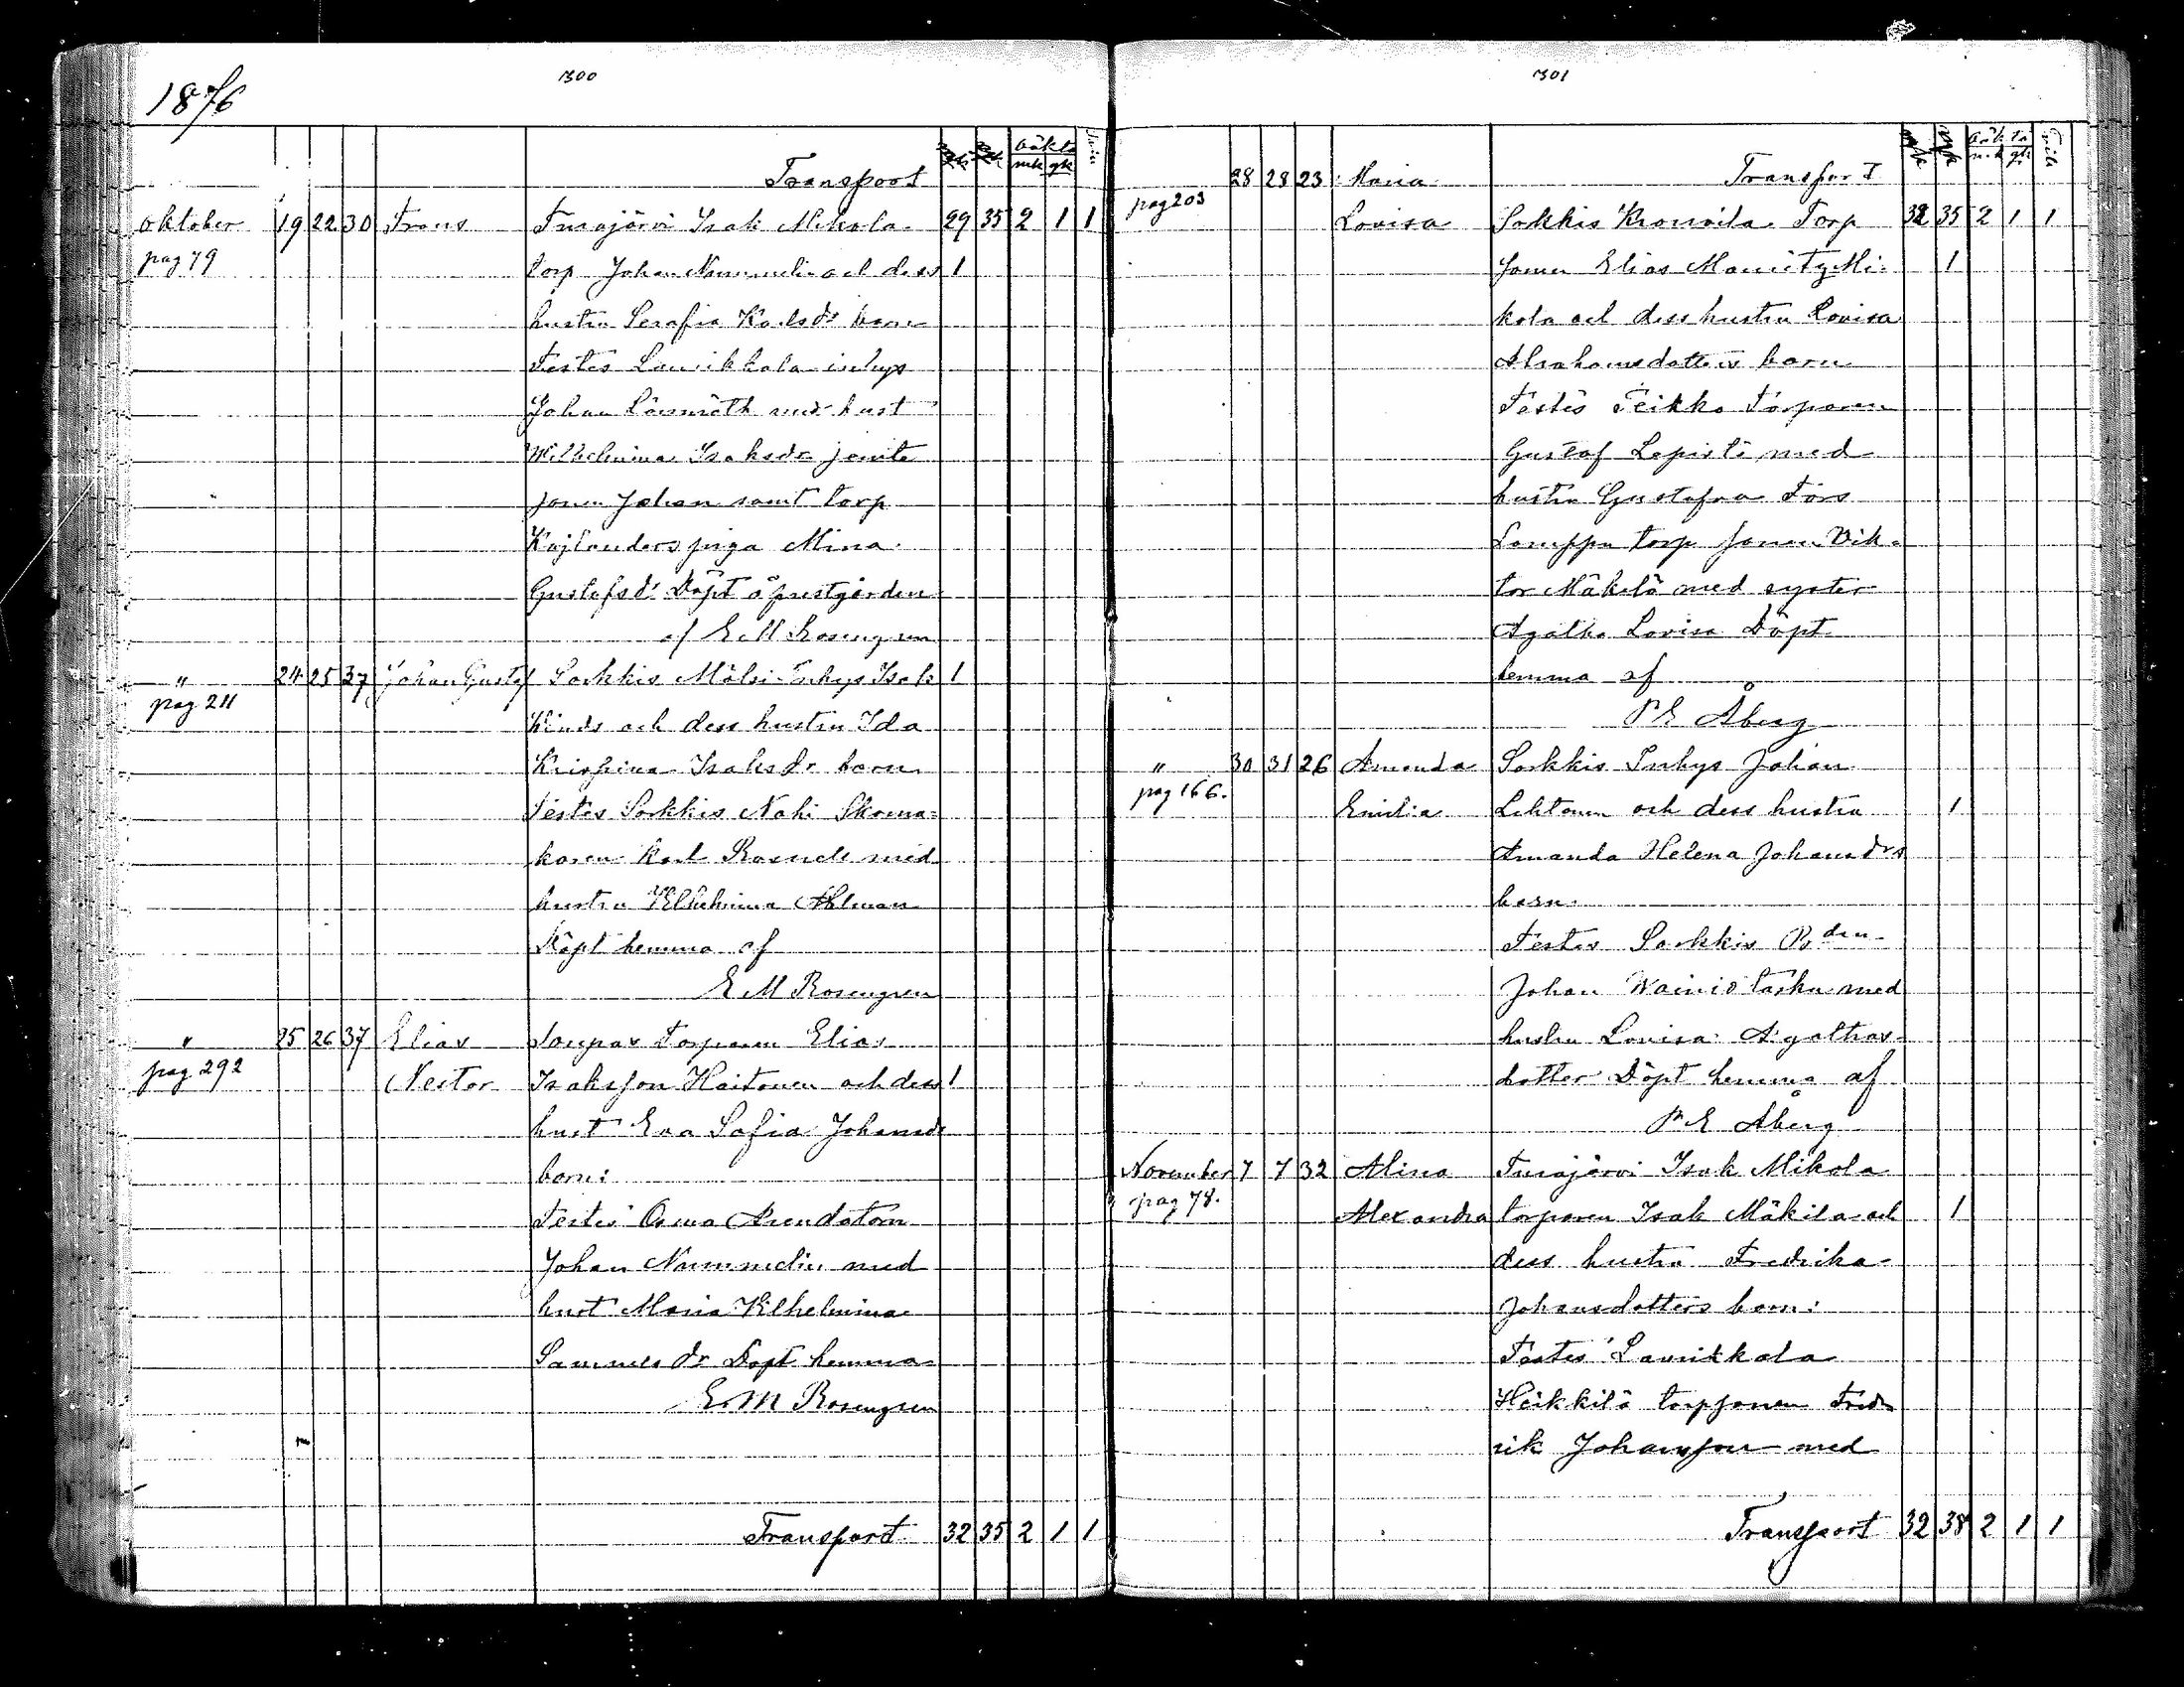 300
1876
oäkta
mk gk
Transport
Oktober 19 22 30 Frans Turajärvi Isak Mikola 29 35 2 1 1
pag 79 torp Johan Nummelin och dess 1
hustru Serafia Karlsdr barn
Testes Laurikkala inhys
Johan Lönnroth med hust
Wilhelmina Isaksdr jemte
sonen Johan samt torp
Kajlanders piga Mina
Gustafsdr Döpt å prestgården
af E M Rosengren
" 24 25 37 Johan Gustaf Sorkkis Mälsi Inhys Isak 1
pag 211 och dess hustru Ida
Krispina Isaksdr barn
Testes Sorkkis Nahi Skoma=
karen Karl med
hustru Vilhelmina Ahlman
Döpt hemma af
E M Rosengren
" 25 26 37 Elias Torparen Elias
pag 292 Nestor Isaksson Haitonen och dess 1
hust Eva Sofia Johansdr
barn:
Testes Arendatorn
Johan Nummelin med
hust Maria Vilhelmina
Sammels dr Döpt hemma
E. M Rosengren
Transport 32 35 2 1 1
301
oäkta
mk gk
28 28 23 Maria Transport
pag 203
Lovisa Sorkkis Torp 32 35 2 1 1
sonen Elias Mi= 1
kola och dess hustru Lovisa
Abrahamsdotters barn
Testes Teikko Torparen
Gustaf Lepistö med
hustru Gustafva
Lamppu torp sonen Vik=
tor Mäkilä med syster
Agatha Lovisa Döpt
hemma af
Åberg
" 30 31 26 Amanda Sorkkis Inhys Johan
pag 166. Emilia Lehtonen och dess hustru 1
Amanda Helena Johansdrs
barn.
Testes Sorkkis Bden
Johan Wainio Tasku med
hustru Lovisa Agathas
dotter Döpt hemma af
Åberg
November 7 7 32 Alina Turajärvi Isak Mikola
pag 78. Alexandra torparen Isak Mäkilä och 1
dess hustru Fredrika
Johansdotters barn:
Testes Laurikkala
Heikkilä torpsonen Fred
rik Johansson med
Transport 32 38 2 1 1